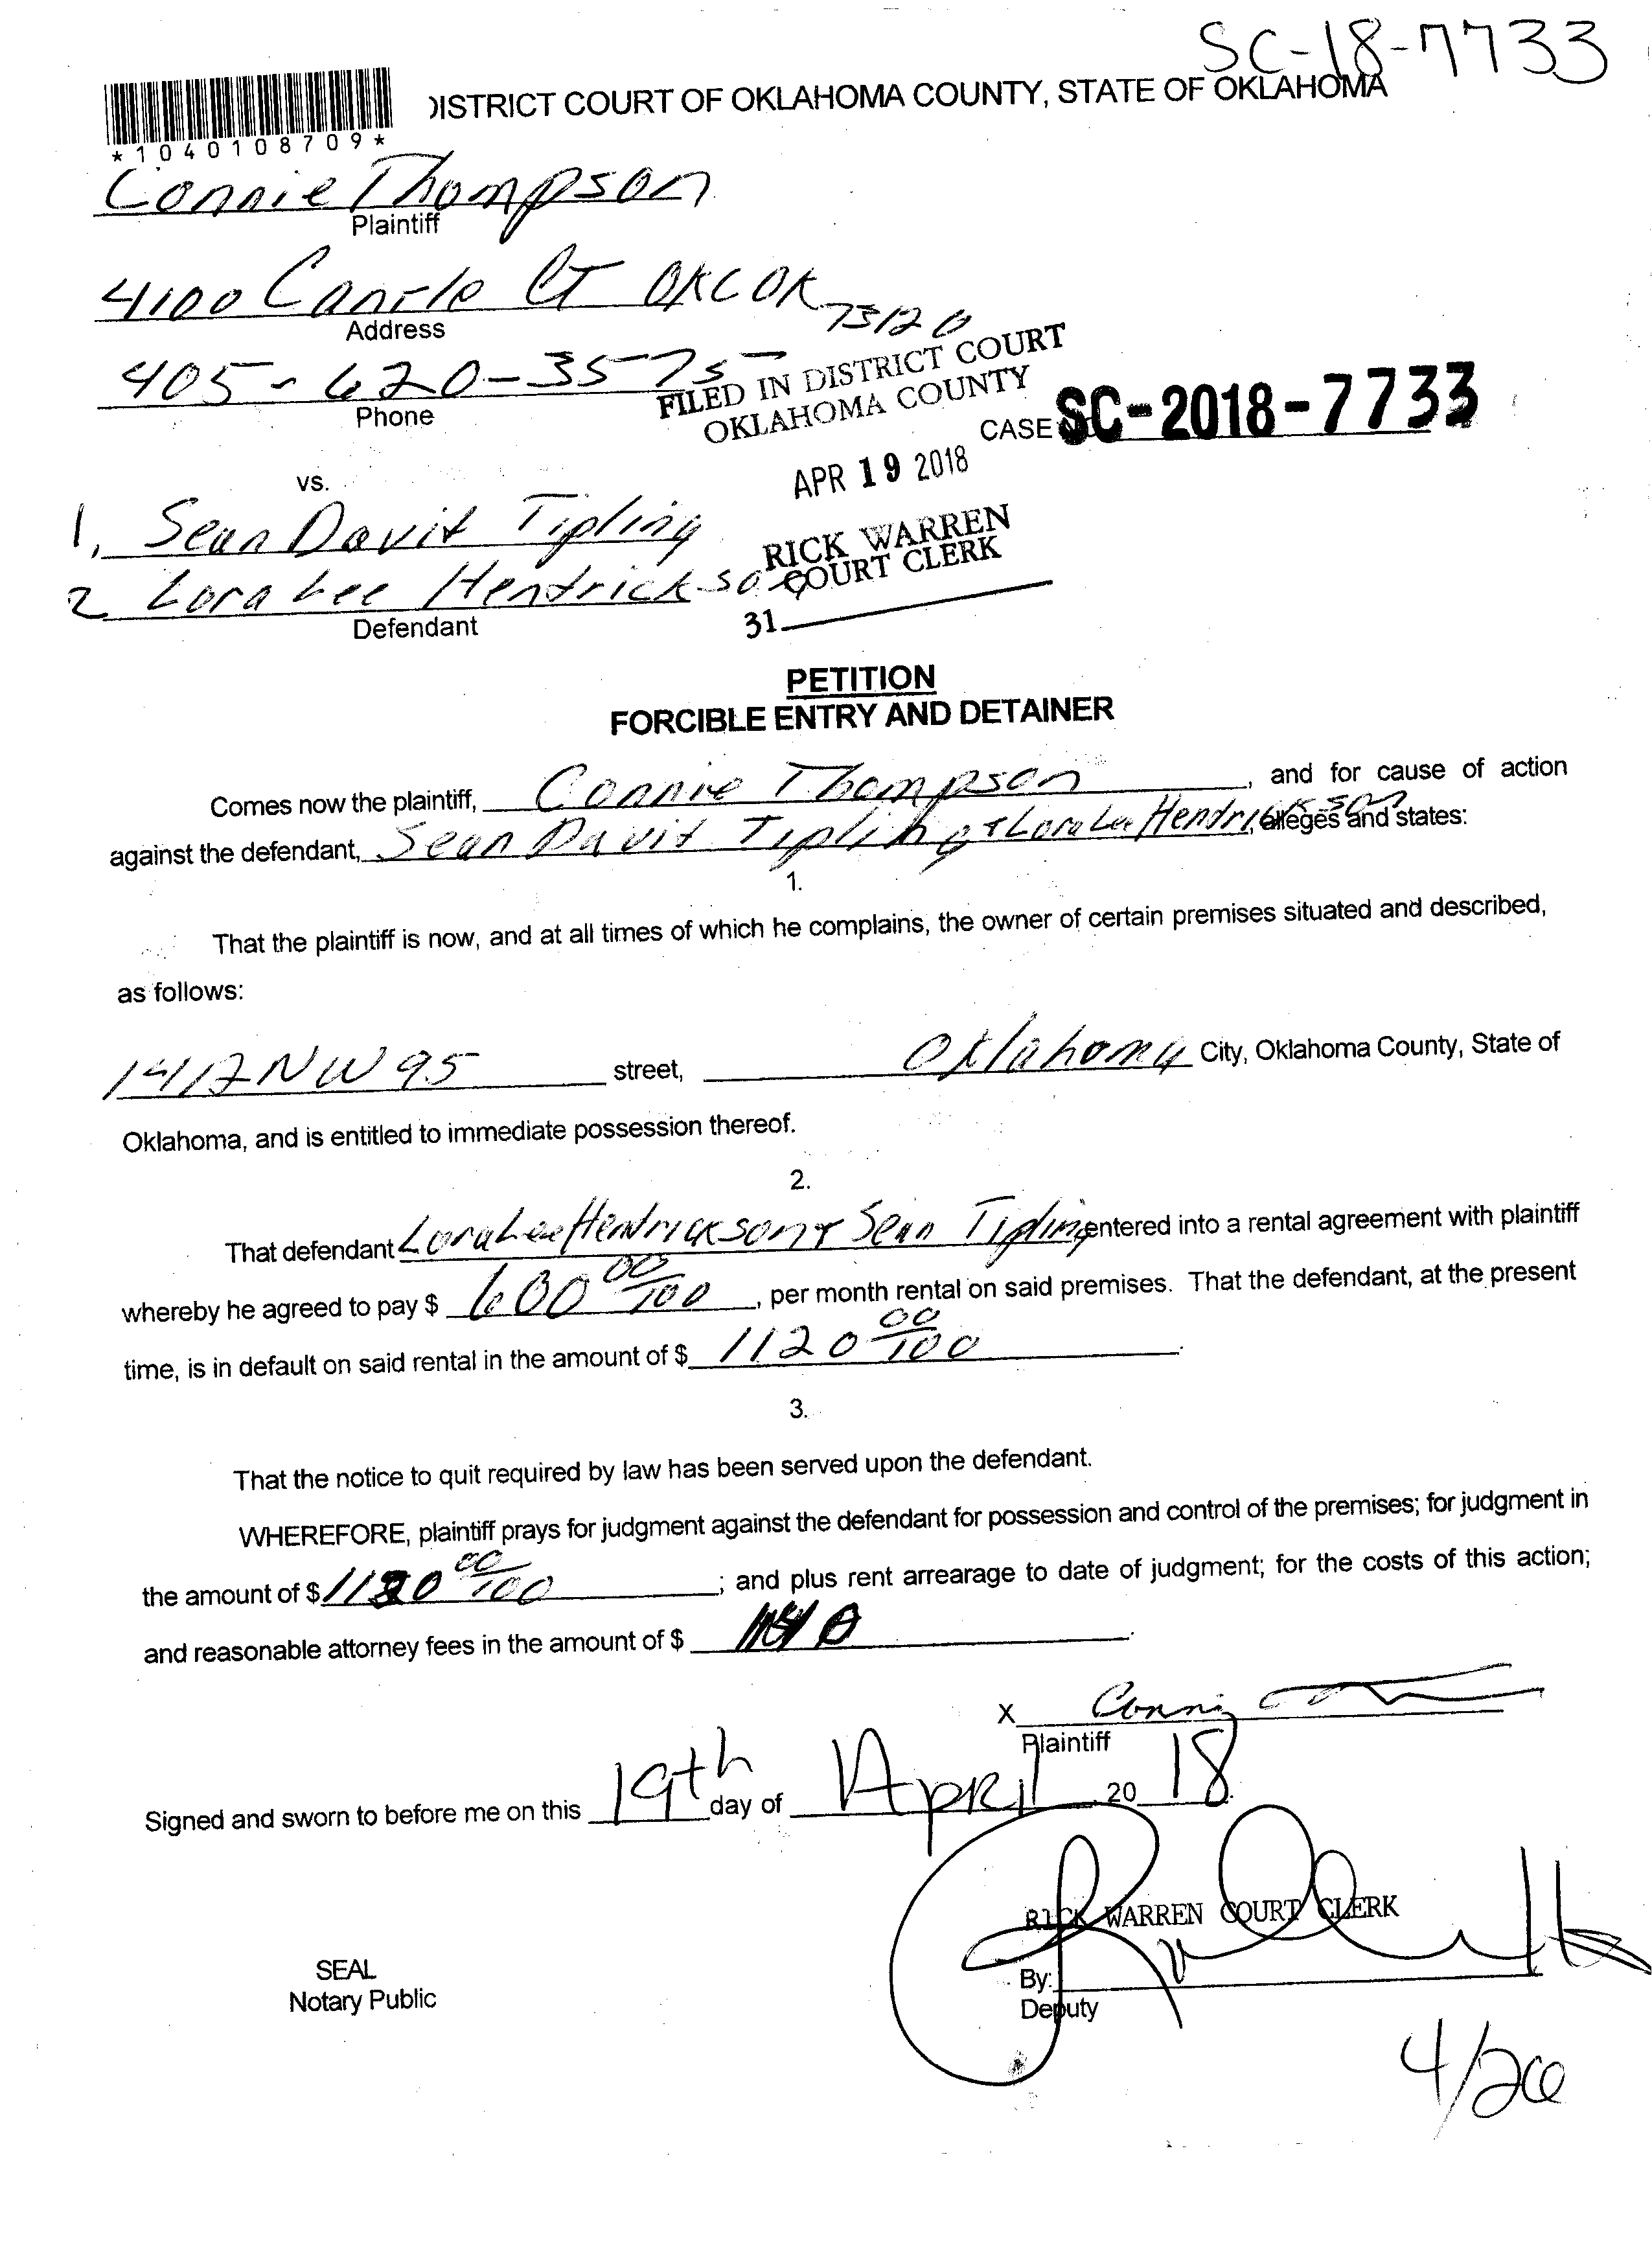 SC-18-7733
DISTRICT COURT OF OKLAHOMA COUNTY, STATE OF OKLAHOMA
*1040108709*
Connie Thompson
Plaintiff
4100 Ct OKC OK 73120
Address
405-620-3575
Phone
FILED IN DISTRICT COURT
OKLAHOMA COUNTY
CASE SC-2018-7733
APR 19 2018
vs.
1, Sean Davit Tipling
RICK WARREN
COURT CLERK
2 Lora Lee Hendrickson
31
Defendant
PETITION
FORCIBLE ENTRY AND DETAINER
Comes now the plaintiff, Connie Thompson, and for cause of action
against the defendant, Sean Davit Tipling + Lora Lee Hendrickson, alleges and states:
1.
That the plaintiff is now, and at all times of which he complains, the owner of certain premises situated and described,
as follows:
1412 NW 95 street, Oklahoma City, Oklahoma County, State of
Oklahoma, and is entitled to immediate possession thereof.
2.
That defendant Lora Lee Hendrickson + Sean Tipling entered into a rental agreement with plaintiff
whereby he agreed to pay $ 600 00/100, per month rental on said premises. That the defendant, at the present
time, is in default on said rental in the amount of $ 1120 00/100.
3.
That the notice to quit required by law has been served upon the defendant.
WHEREFORE, plaintiff prays for judgment against the defendant for possession and control of the premises; for judgment in
the amount of $ 1120 00/100; and plus rent arrearage to date of judgment; for the costs of this action;
and reasonable attorney fees in the amount of $
X Connie
Plaintiff
Signed and sworn to before me on this 19th day of April, 20 18.
RICK WARREN COURT CLERK
SEAL
Notary Public
By:
Deputy
4/26